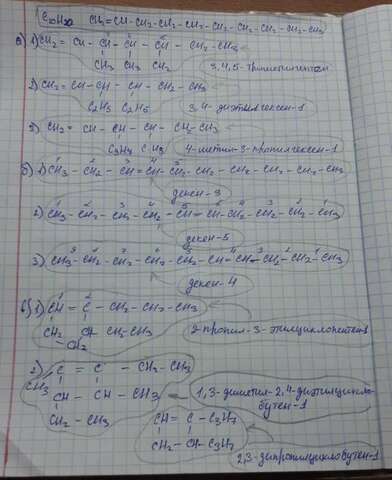 C10H20 CH2=CH-CH2-CH2-CH2-CH2-CH2-CH2-CH2-CH3
а) 1) CH2= CH - CH - CH - CH - CH2-CH3
CH3 CH3 CH3
3,4,5-триметилгептен
2) CH2=CH-CH - CH - CH2-CH3
C2H5 C2H5
3,4-диэтилгексен-1
3) CH2= CH - CH - CH - CH2-CH3
C3H7 CH3
4-метил-3-пропилгексен-1
б) 1) CH3 - CH2 - CH = CH - CH2 - CH2 - CH2 - CH2 - CH2 - CH3
децен-3
2) CH3 - CH2 - CH2 - CH2 - CH = CH - CH2 - CH2 - CH2 - CH3
децен-5
3) CH3 - CH2 - CH2 - CH2 - CH2 - CH = CH - CH2 - CH2 - CH3
децен-4
в) 1) CH = C - CH2 - CH2 - CH3
CH2 CH CH2-CH3
CH2
2-пропил-3-этилциклопентен-1
2) C = C - CH2 - CH3
CH3
CH - CH - CH3
CH2 - CH3
1,3-диметил-2,4-диэтилцикло-
бутен-1
CH = C - C3H7
CH2 - CH - C3H7
2,3-дипропилциклобутен-1